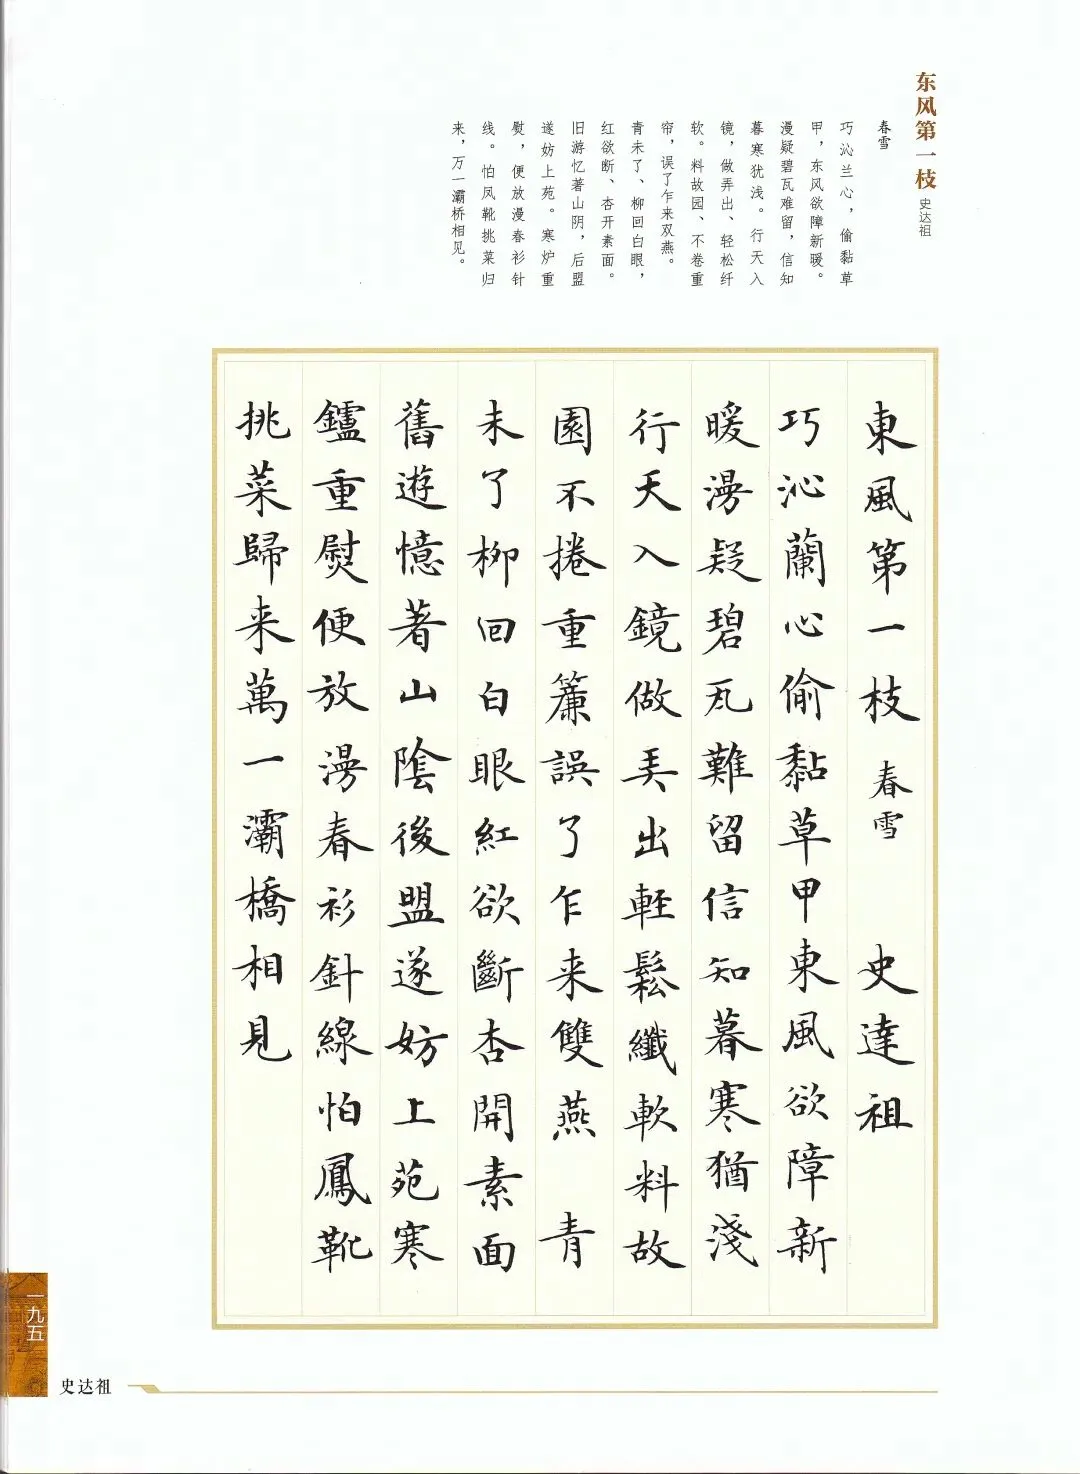 东风第一枝 史达祖
春雪
巧沁兰心，偷黏草
甲，东风欲障新暖。
漫疑碧瓦难留，信知
暮寒犹浅。行天入
镜，做弄出、轻松纤
软。料故园、不卷重
帘，误了乍来双燕。
青未了、柳回白眼，
红欲断、杏开素面。
旧游忆著山阴，后盟
遂妨上苑。寒炉重
熨，便放漫春衫针
线。怕凤靴挑菜归
来，万一灞桥相见。
東風第一枝 春雪 史達祖
巧沁蘭心偷黏草甲東風欲障新
暖漫疑碧瓦難留信知暮寒猶淺
行天入鏡做弄出輕鬆纖軟料故
園不捲重簾誤了乍来雙燕 青
未了柳回白眼紅欲斷杏開素面
舊遊憶著山陰後盟遂妨上苑寒
鑪重熨便放漫春衫針線怕鳳靴
挑菜歸来萬一灞橋相見
一九五
史达祖